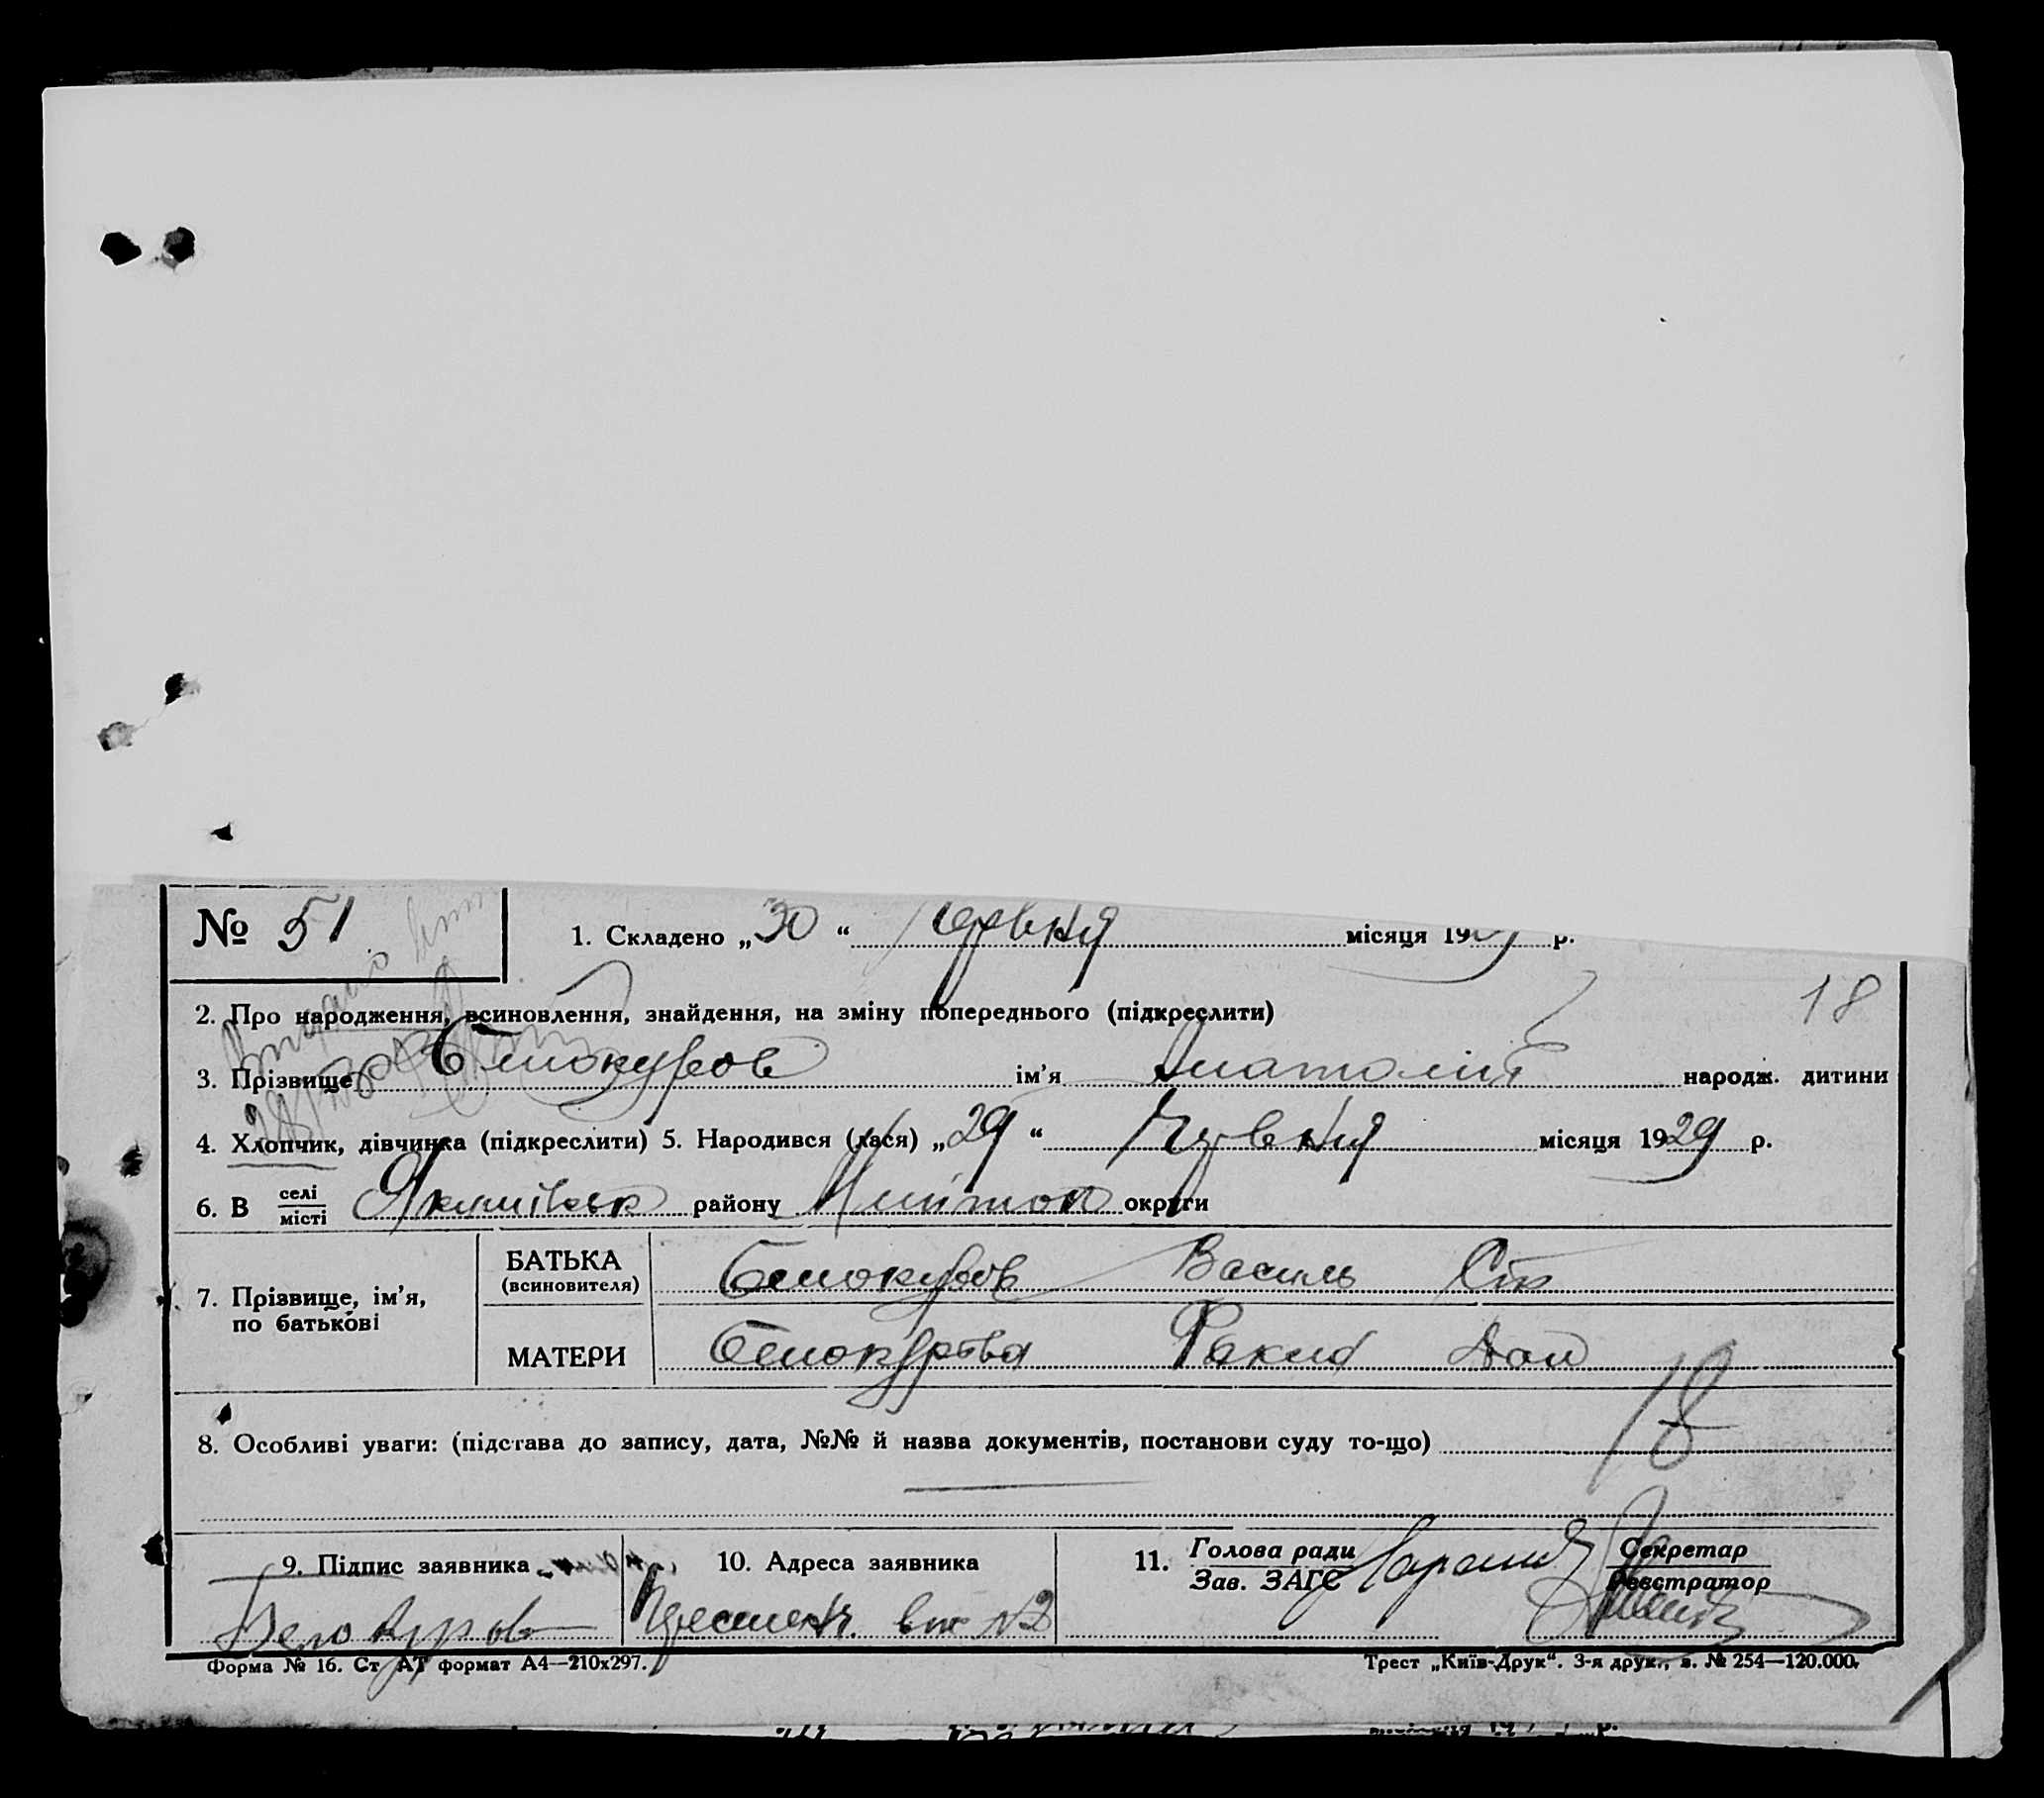 № 51
1. Складено „30“ Червня місяця 1929 р.
18
2. Про народження, всиновлення, знайдення, на зміну попереднього (підкреслити)
3. Прізвище Білокуров ім'я Анатолій народж. дитини
4. Хлопчик, дівчинка (підкреслити) 5. Народився (лася) „29“ Червня місяця 1929 р.
6. В селі/місті Якимівськ району Миітоп округи
7. Прізвище, ім'я, по батькові
БАТЬКА (всиновителя) Белокуров Василь
МАТЕРИ Белокурова
18
8. Особливі уваги: (підстава до запису, дата, №№ й назва документів, постанови суду то-що)
9. Підпис заявника
10. Адреса заявника
11. Голова ради/Зав. ЗАГС Секретар/Реєстратор
Белокуров №2
Форма № 16. Ст. АТ формат А4—210х297.
Трест „Київ-Друк“. 3-я друк., з. № 254—120.000.